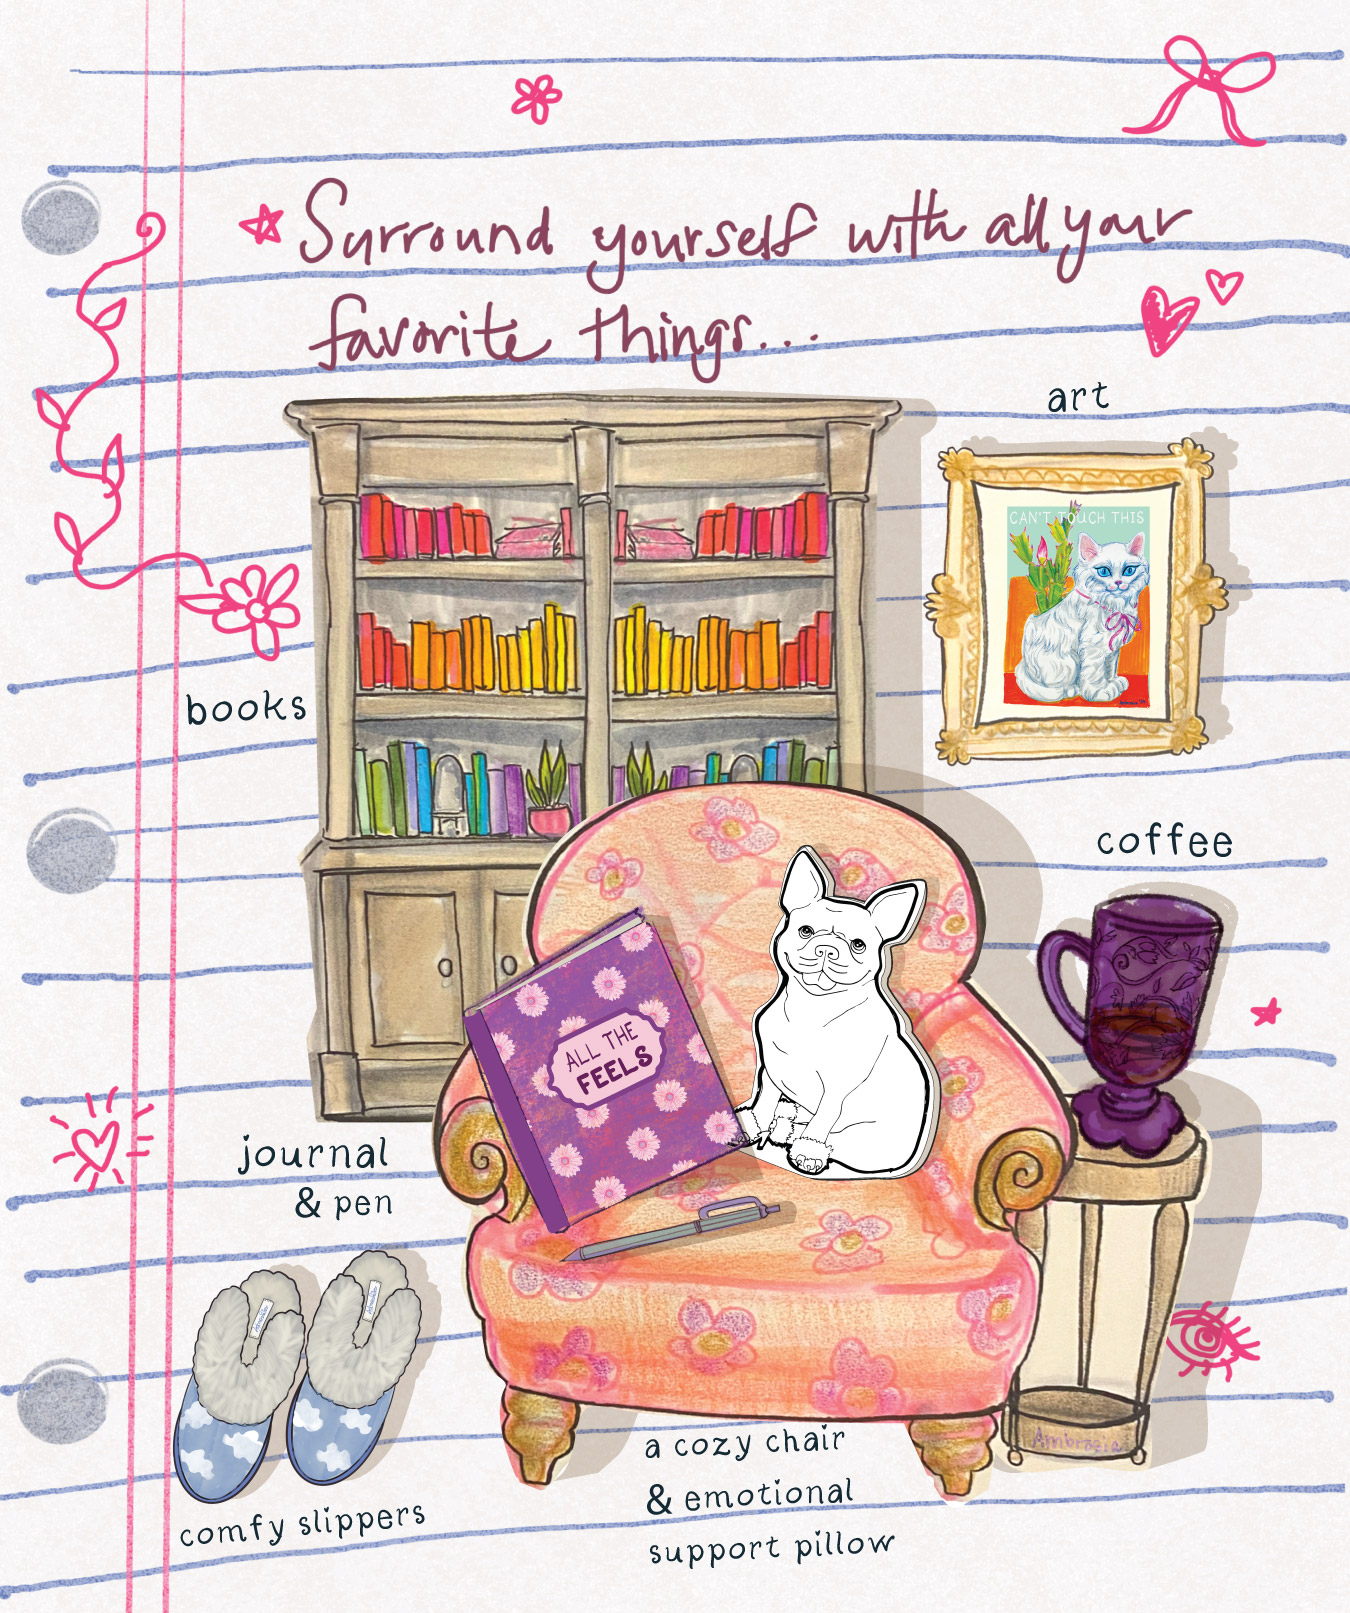 Surround yourself with all your
favorite things...
art
CAN'T TOUCH THIS
books
coffee
ALL THE
FEELS
journal
& pen
Ambrozeia
a cozy chair
& emotional
support pillow
comfy slippers